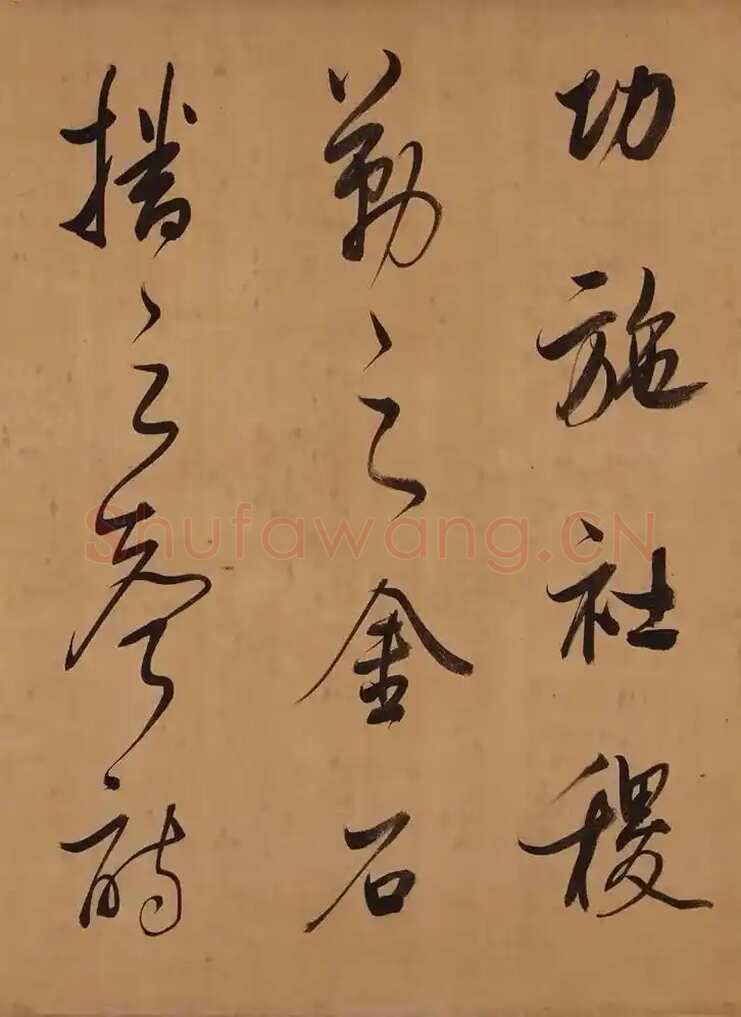 功施社稷
勒之金石
播之聲詩
Shufawang.CN